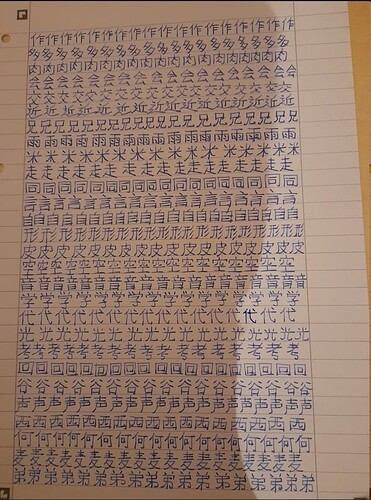 作作作作作作作作作作作作作作作作
多多多多多多多多多多多多多多多多
肉肉肉肉肉肉肉肉肉肉肉肉肉肉肉肉
会会会会会会会会会会会会会会会会
交交交交交交交交交交交交交交交交
近近近近近近近近近近近近近近近近
兄兄兄兄兄兄兄兄兄兄兄兄兄兄兄兄兄
雨雨雨雨雨雨雨雨雨雨雨雨雨雨雨雨雨
米米米米米米米米米米米米米米米米
走走走走走走走走走走走走走走走走走
同同同同同同同同同同同同同同同同同
言言言言言言言言言言言言言言言言言
自自自自自自自自自自自自自自自自自自
形形形形形形形形形形形形形形形形形
皮皮皮皮皮皮皮皮皮皮皮皮皮皮皮皮皮皮
空空空空空空空空空空空空空空空空空
音音音音音音音音音音音音音音音音音音
学学学学学学学学学学学学学学学
代代代代代代代代代代代代代代代
光光光光光光光光光光光光光光光光
考考考考考考考考考考考考考考考
回回回回回回回回回回回回回回回回
谷谷谷谷谷谷谷谷谷谷谷谷谷谷谷谷谷
声声声声声声声声声声声声声声声声声
西西西西西西西西西西西西西西西西
何何何何何何何何何何何何何何何何
麦麦麦麦麦麦麦麦麦麦麦麦麦麦麦麦麦
弟弟弟弟弟弟弟弟弟弟弟弟弟弟弟弟弟